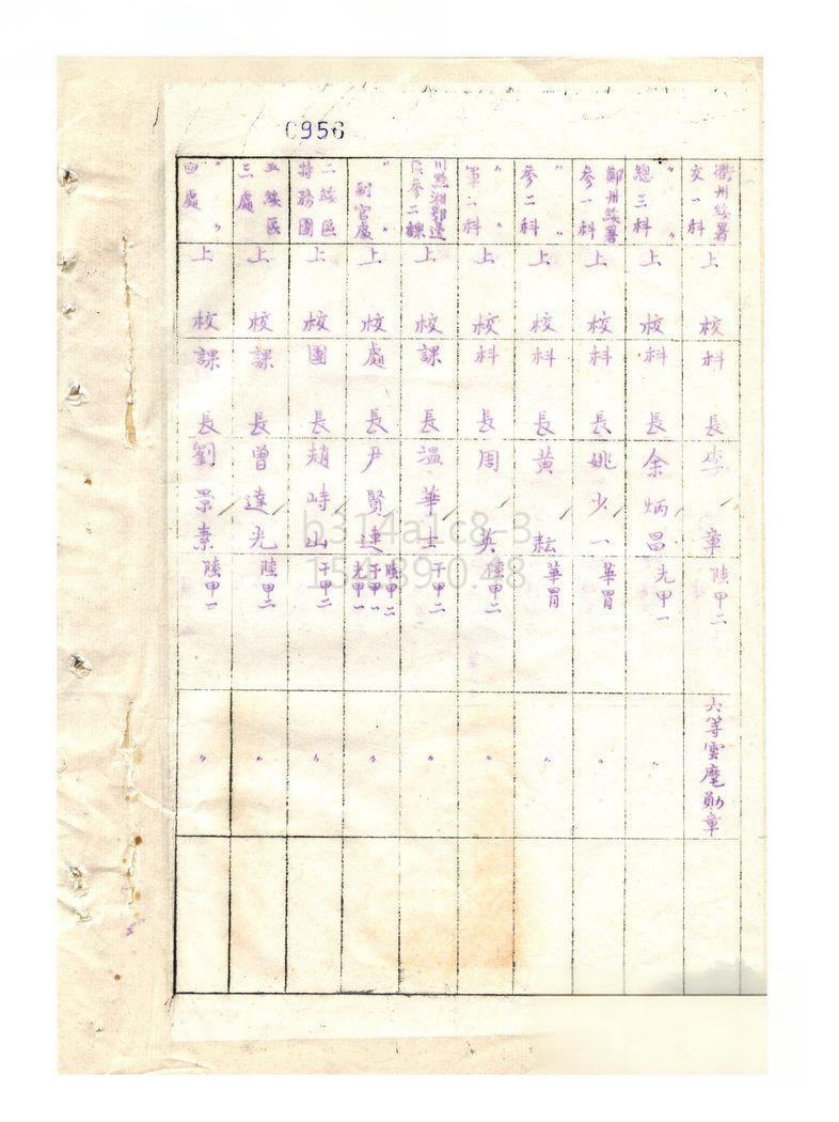 0956
衢州綏署交一科 上校 科長 李章 陸甲二 六等雲麾勛章
〃總三科 上校 科長 余炳昌 光甲一 〃
鄭州綏署參一科 上校 科長 姚少一 華胄 〃
〃參二科 上校 科長 黃耘 華胄 〃
〃軍一科 上校 科長 周英 陸甲二 〃
川黔湘鄂邊 參二課 上校 課長 溫華士 干甲二 〃
〃副官處 上校 處長 尹賢連 陸甲二 干甲一 光甲一 〃
二綏區特務團 上校 團長 趙峙山 干甲二 〃
五綏區三處 上校 課長 曾達光 陸甲二 〃
〃四處 上校 課長 劉景素 陸甲一 〃